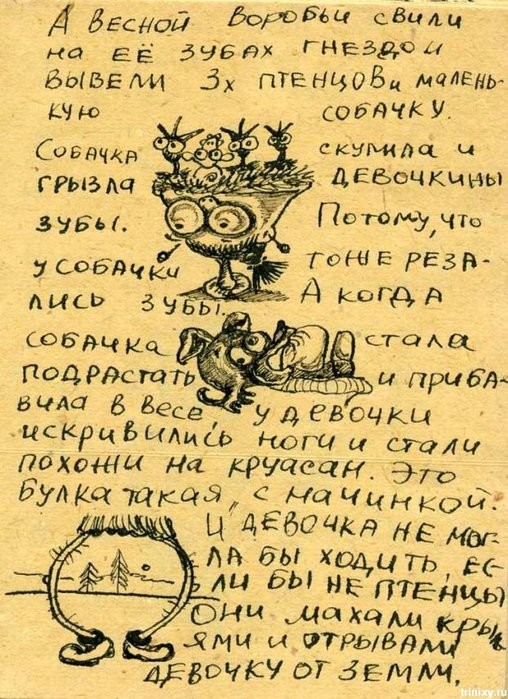 А весной воробьи свили
на её зубах гнездо и
вывели 3х птенцов и малень-
кую собачку.
Собачка скулила и
грызла девочкины
зубы. Потому, что
у собачки тоже реза-
лись зубы. А когда
собачка стала
подрастать и приба-
вила в весе у девочки
искривились ноги и стали
похожи на круасан. Это
булка такая, с начинкой.
И девочка не мог-
ла бы ходить, ес-
ли бы не птенцы
Они махали крыль
ями и отрывали
девочку от земли.
trinixy.ru